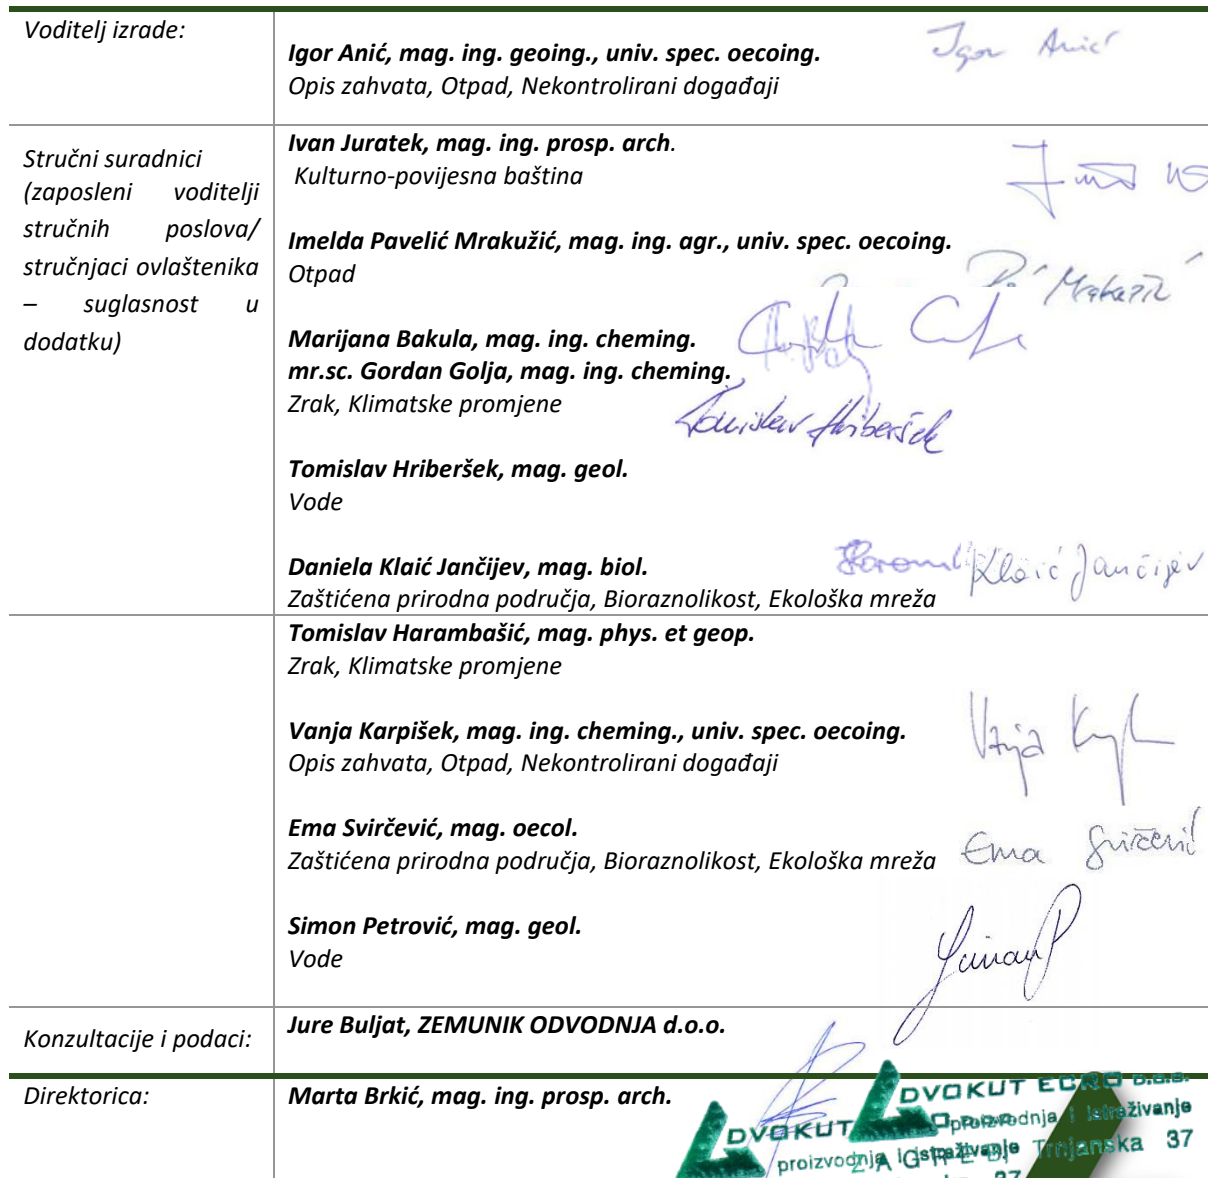 Voditelj izrade:
Igor Anić, mag. ing. geoing., univ. spec. oecoing.
Igor Anić
Opis zahvata, Otpad, Nekontrolirani događaji
Stručni suradnici
(zaposleni voditelji
stručnih poslova/
stručnjaci ovlaštenika
– suglasnost u
dodatku)
Ivan Juratek, mag. ing. prosp. arch.
Kulturno-povijesna baština
Imelda Pavelić Mrakužić, mag. ing. agr., univ. spec. oecoing.
Otpad
Marijana Bakula, mag. ing. cheming.
mr.sc. Gordan Golja, mag. ing. cheming.
Zrak, Klimatske promjene
Tomislav Hriberšek
Tomislav Hriberšek, mag. geol.
Vode
Daniela Klaić Jančijev, mag. biol.
Klaić Jančijev
Zaštićena prirodna područja, Bioraznolikost, Ekološka mreža
Tomislav Harambašić, mag. phys. et geop.
Zrak, Klimatske promjene
Vanja Karpišek, mag. ing. cheming., univ. spec. oecoing.
Opis zahvata, Otpad, Nekontrolirani događaji
Ema Svirčević, mag. oecol.
Zaštićena prirodna područja, Bioraznolikost, Ekološka mreža
Ema Svirčević
Simon Petrović, mag. geol.
Vode
Konzultacije i podaci:
Jure Buljat, ZEMUNIK ODVODNJA d.o.o.
Direktorica:
Marta Brkić, mag. ing. prosp. arch.
DVOKUT ECRO d.o.o.
proizvodnja i istraživanje
ZAGREB, Trnjanska 37
DVOKUT
proizvodnja i istraživanje
37